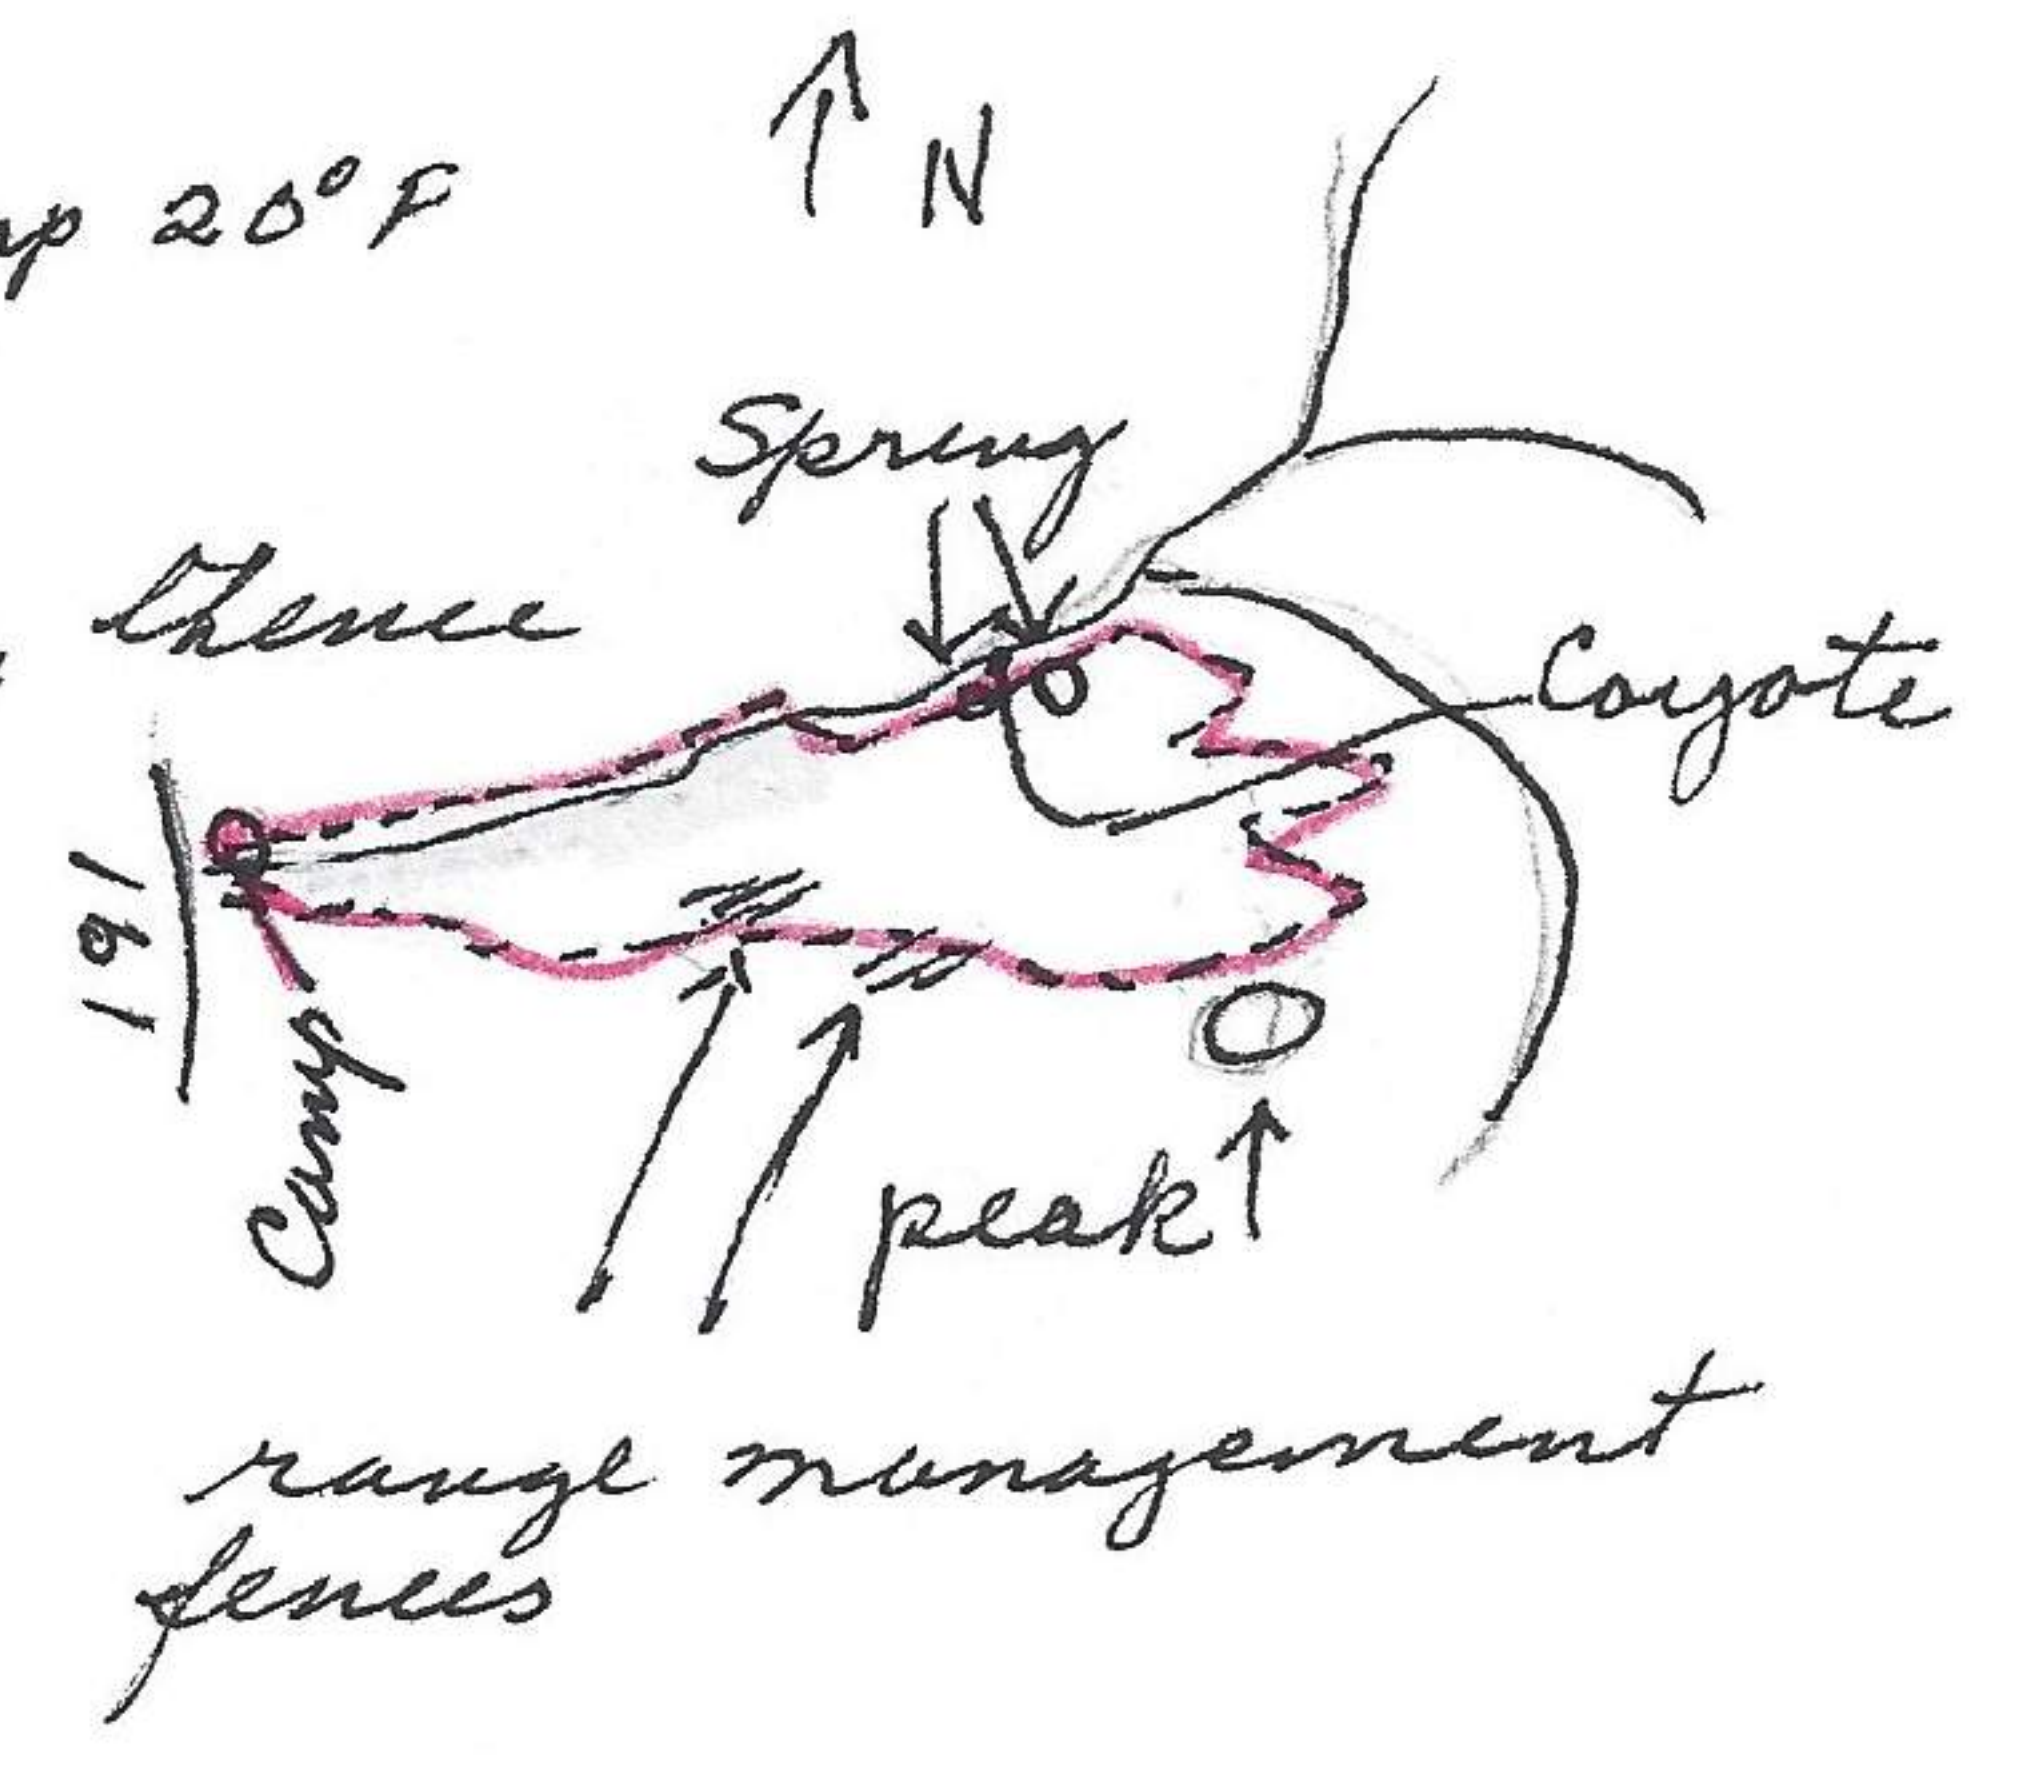 N
20° F
Spring
thence
Coyote
191
Camp
peak
range management
fences